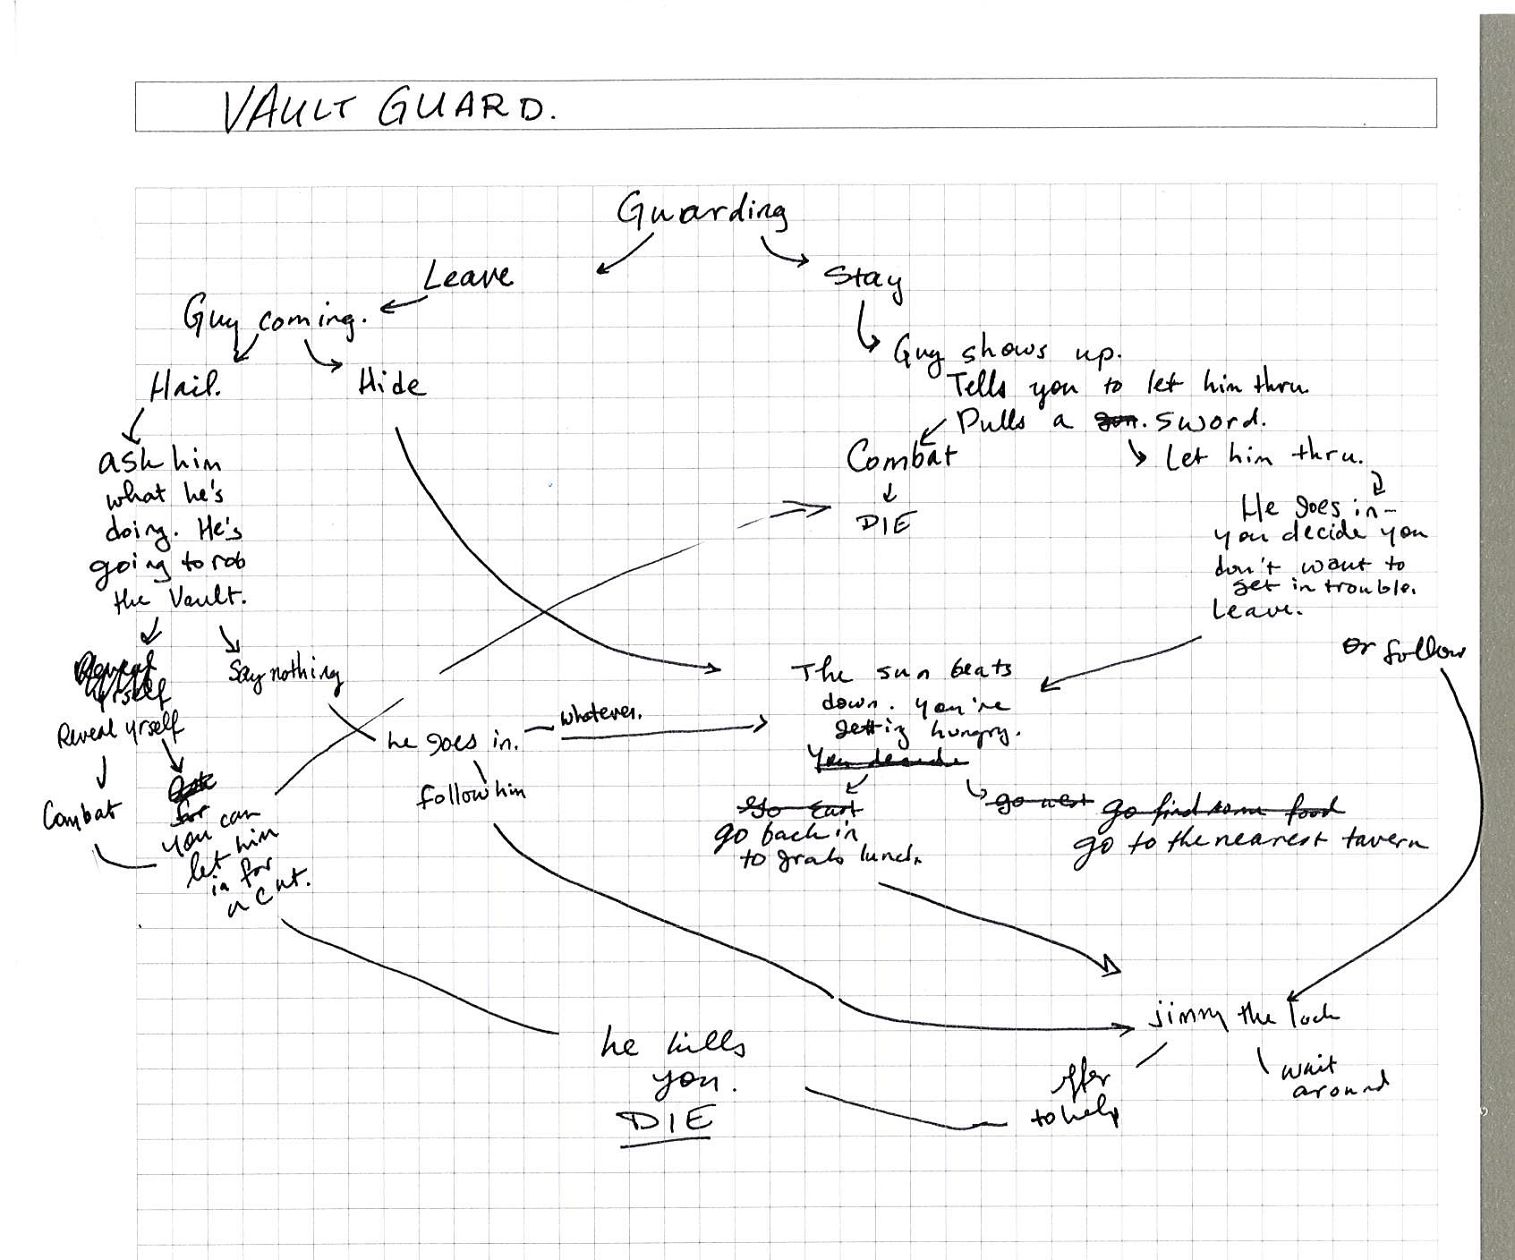 VAULT GUARD.
Guarding
Leave
Stay
Guy coming.
Guy shows up.
Tells you to let him thru
Pulls a gun. sword.
Hail.
Hide
Combat
DIE
Let him thru.
He goes in–
you decide you
don't want to
get in trouble.
Leave.
or follow
ask him
what he's
doing. He's
going to rob
the Vault.
Reveal
yrself
Reveal yrself
Say nothing
Combat
for
you can
let him
in for
a cut.
he goes in.
whatever.
follow him
The sun beats
down. you're
getting hungry.
You decide
Go East
go back in
to grab lunch.
go west
go find some food
go to the nearest tavern
jimmy the lock
offer
to help
wait
around
he kills
you.
DIE